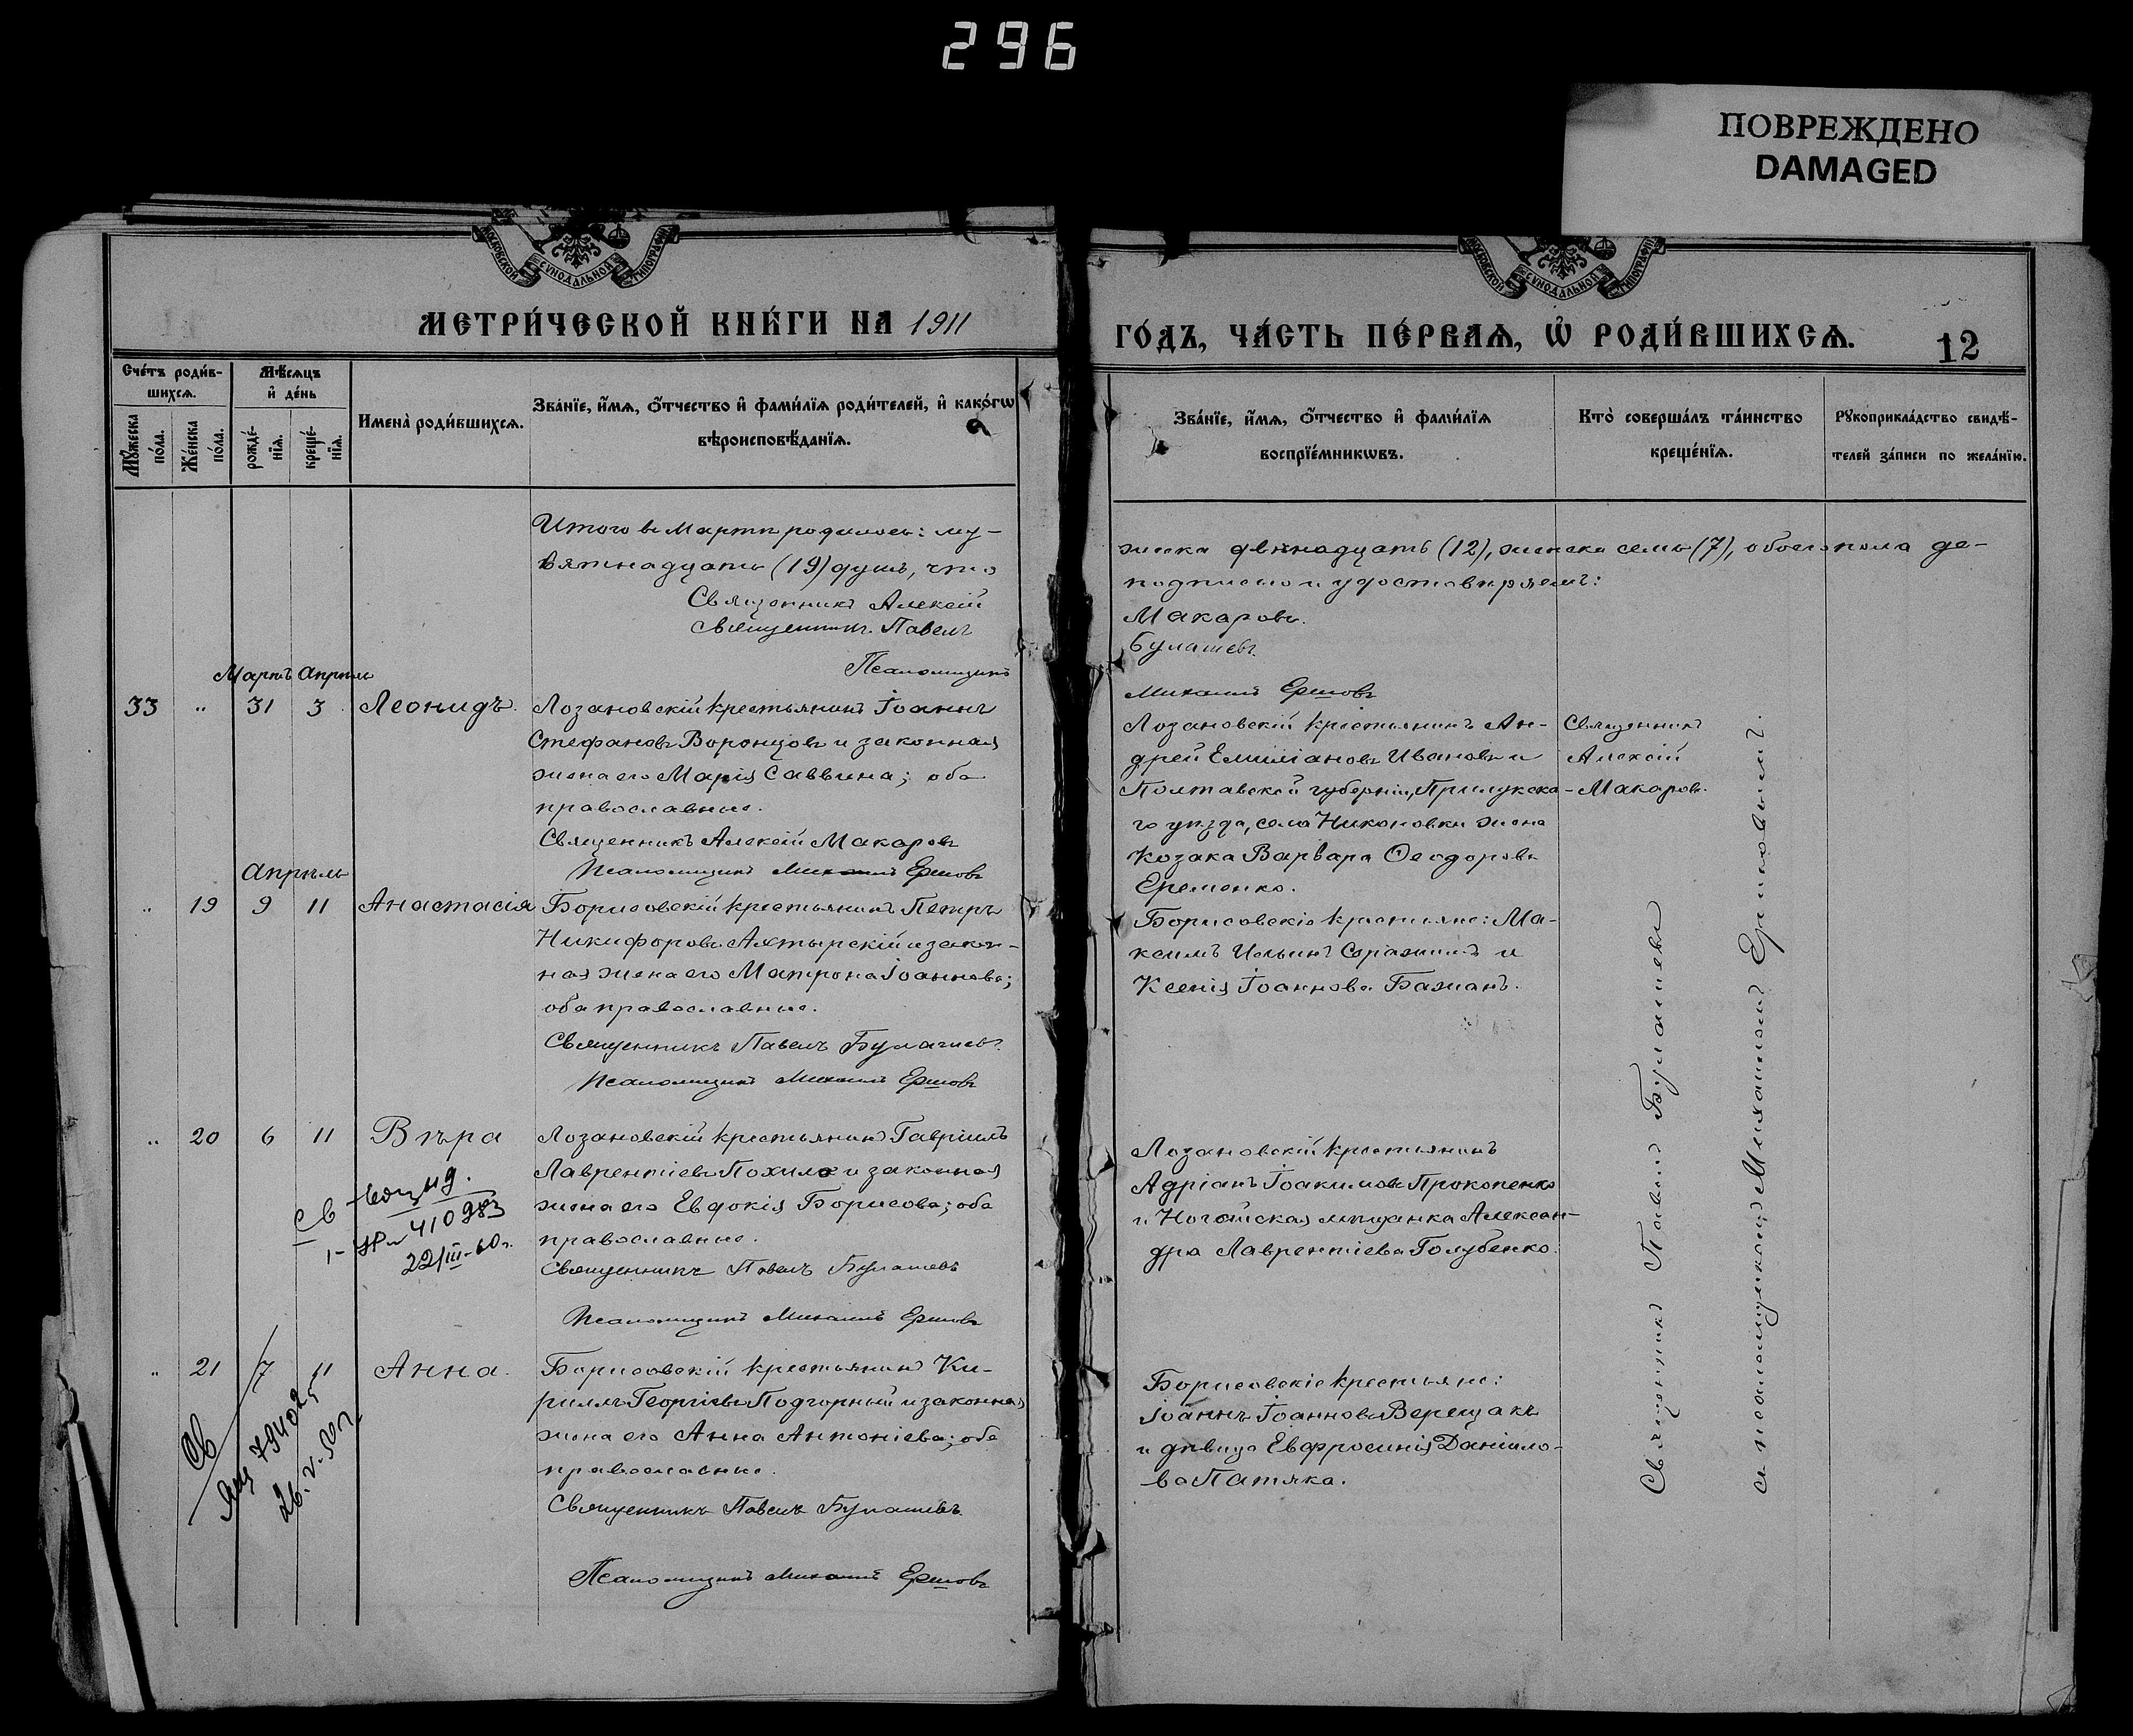 296
ПОВРЕЖДЕНО
DAMAGED
МОСКОВСКОЙ СУНОДАЛЬНОЙ ТИПОГРАФІИ
МОСКОВСКОЙ СУНОДАЛЬНОЙ ТИПОГРАФІИ
МЕТРИ́ЧЕСКОЙ КНИ́ГИ НА 1911
ГО́ДЪ, ЧА́СТЬ ПЕ́РВАѦ, Ѽ РОДИ́ВШИХСѦ.
12
Сче́тъ роди́в-
шихсѧ.
Мѣ́сѧцъ
и҆ де́нь
Мꙋ́жеска
по́ла.
Же́нска
по́ла.
рожде́-
нїѧ.
креще́-
нїѧ.
Имена̀ роди́вшихсѧ.
Зва́нїе, и҆́мѧ, ѻ҆́тчество и҆ фами́лїѧ роди́телей, и҆ како́гѡ
вѣроисповѣ́данїѧ.
Зва́нїе, и҆́мѧ, ѻ҆́тчество и҆ фами́лїѧ
воспрїе́мникѡвъ.
Кто̀ соверша́лъ та́инство
креще́нїѧ.
Рꙋкоприкла́дство свидѣ́-
телей за́писи по жела́нїю.
Итого въ Мартѣ родилось: му-
жеска двѣнадцать (12), женска семь (7), обоего пола де-
вятнадцать (19) душъ, что
подписью и удостовѣряемъ:
Священникъ Алексій
Макаровъ.
Священникъ Павелъ
Булашевъ.
Псаломщикъ
Михаилъ Ершовъ
Мартъ Апрѣль
33 " 31 3 Леонидъ.
Лозановскій крестьянинъ Іоаннъ
Стефановъ Воронцовъ и законная
жена его Марія Саввина; оба
православные.
Священникъ Алексій Макаровъ
Псаломщикъ Михаилъ Ершовъ
Лозановскій крестьянинъ Ан-
дрей Емиліановъ Ивановъ и
Полтавской губерніи, Прилукска-
го уѣзда, села Никоновки жена
Козака Варвара Ѳеодорова
Еременко.
Священникъ
Алексій
Макаровъ.
Апрѣль
" 19 9 11 Анастасія
Борисовскій крестьянинъ Петръ
Никифоровъ Ахтырскій и закон-
ная жена его Матрона Іоаннова;
оба православные.
Священникъ Павелъ Булашевъ.
Псаломщикъ Михаилъ Ершовъ
Борисовскіе крестьяне: Ма-
ксимъ Ильинъ и
Ксенія Іоаннова Бажанъ.
" 20 6 11 Вѣра
Лозановскій крестьянинъ Гавріилъ
Лаврентіевъ Похила и законная
жена его Евдокія Борисова; оба
православные.
Священникъ Павелъ Булашевъ
Псаломщикъ Михаилъ Ершовъ
Лозановскій крестьянинъ
Адріанъ Іоакимовъ Прокопенко
и Ногайская мѣщанка Алексан-
дра Лаврентіева Голубенко.
Св
410983
22/III-60г.
" 21 7 11 Анна.
Борисовскій крестьянинъ Ки-
риллъ Георгіевъ Подгорный и законная
жена его Анна Антоніева; оба
православные.
Священникъ Павелъ Булашевъ.
Псаломщикъ Михаилъ Ершовъ
Борисовскіе крестьяне:
Іоаннъ Іоанновъ Верещакъ
и дѣвица Евфросинія Даніило-
ва Патяка.
Св
26.V.50г
Священникъ Павелъ Булашевъ
съ псаломщикомъ Михаиломъ Ершовымъ.